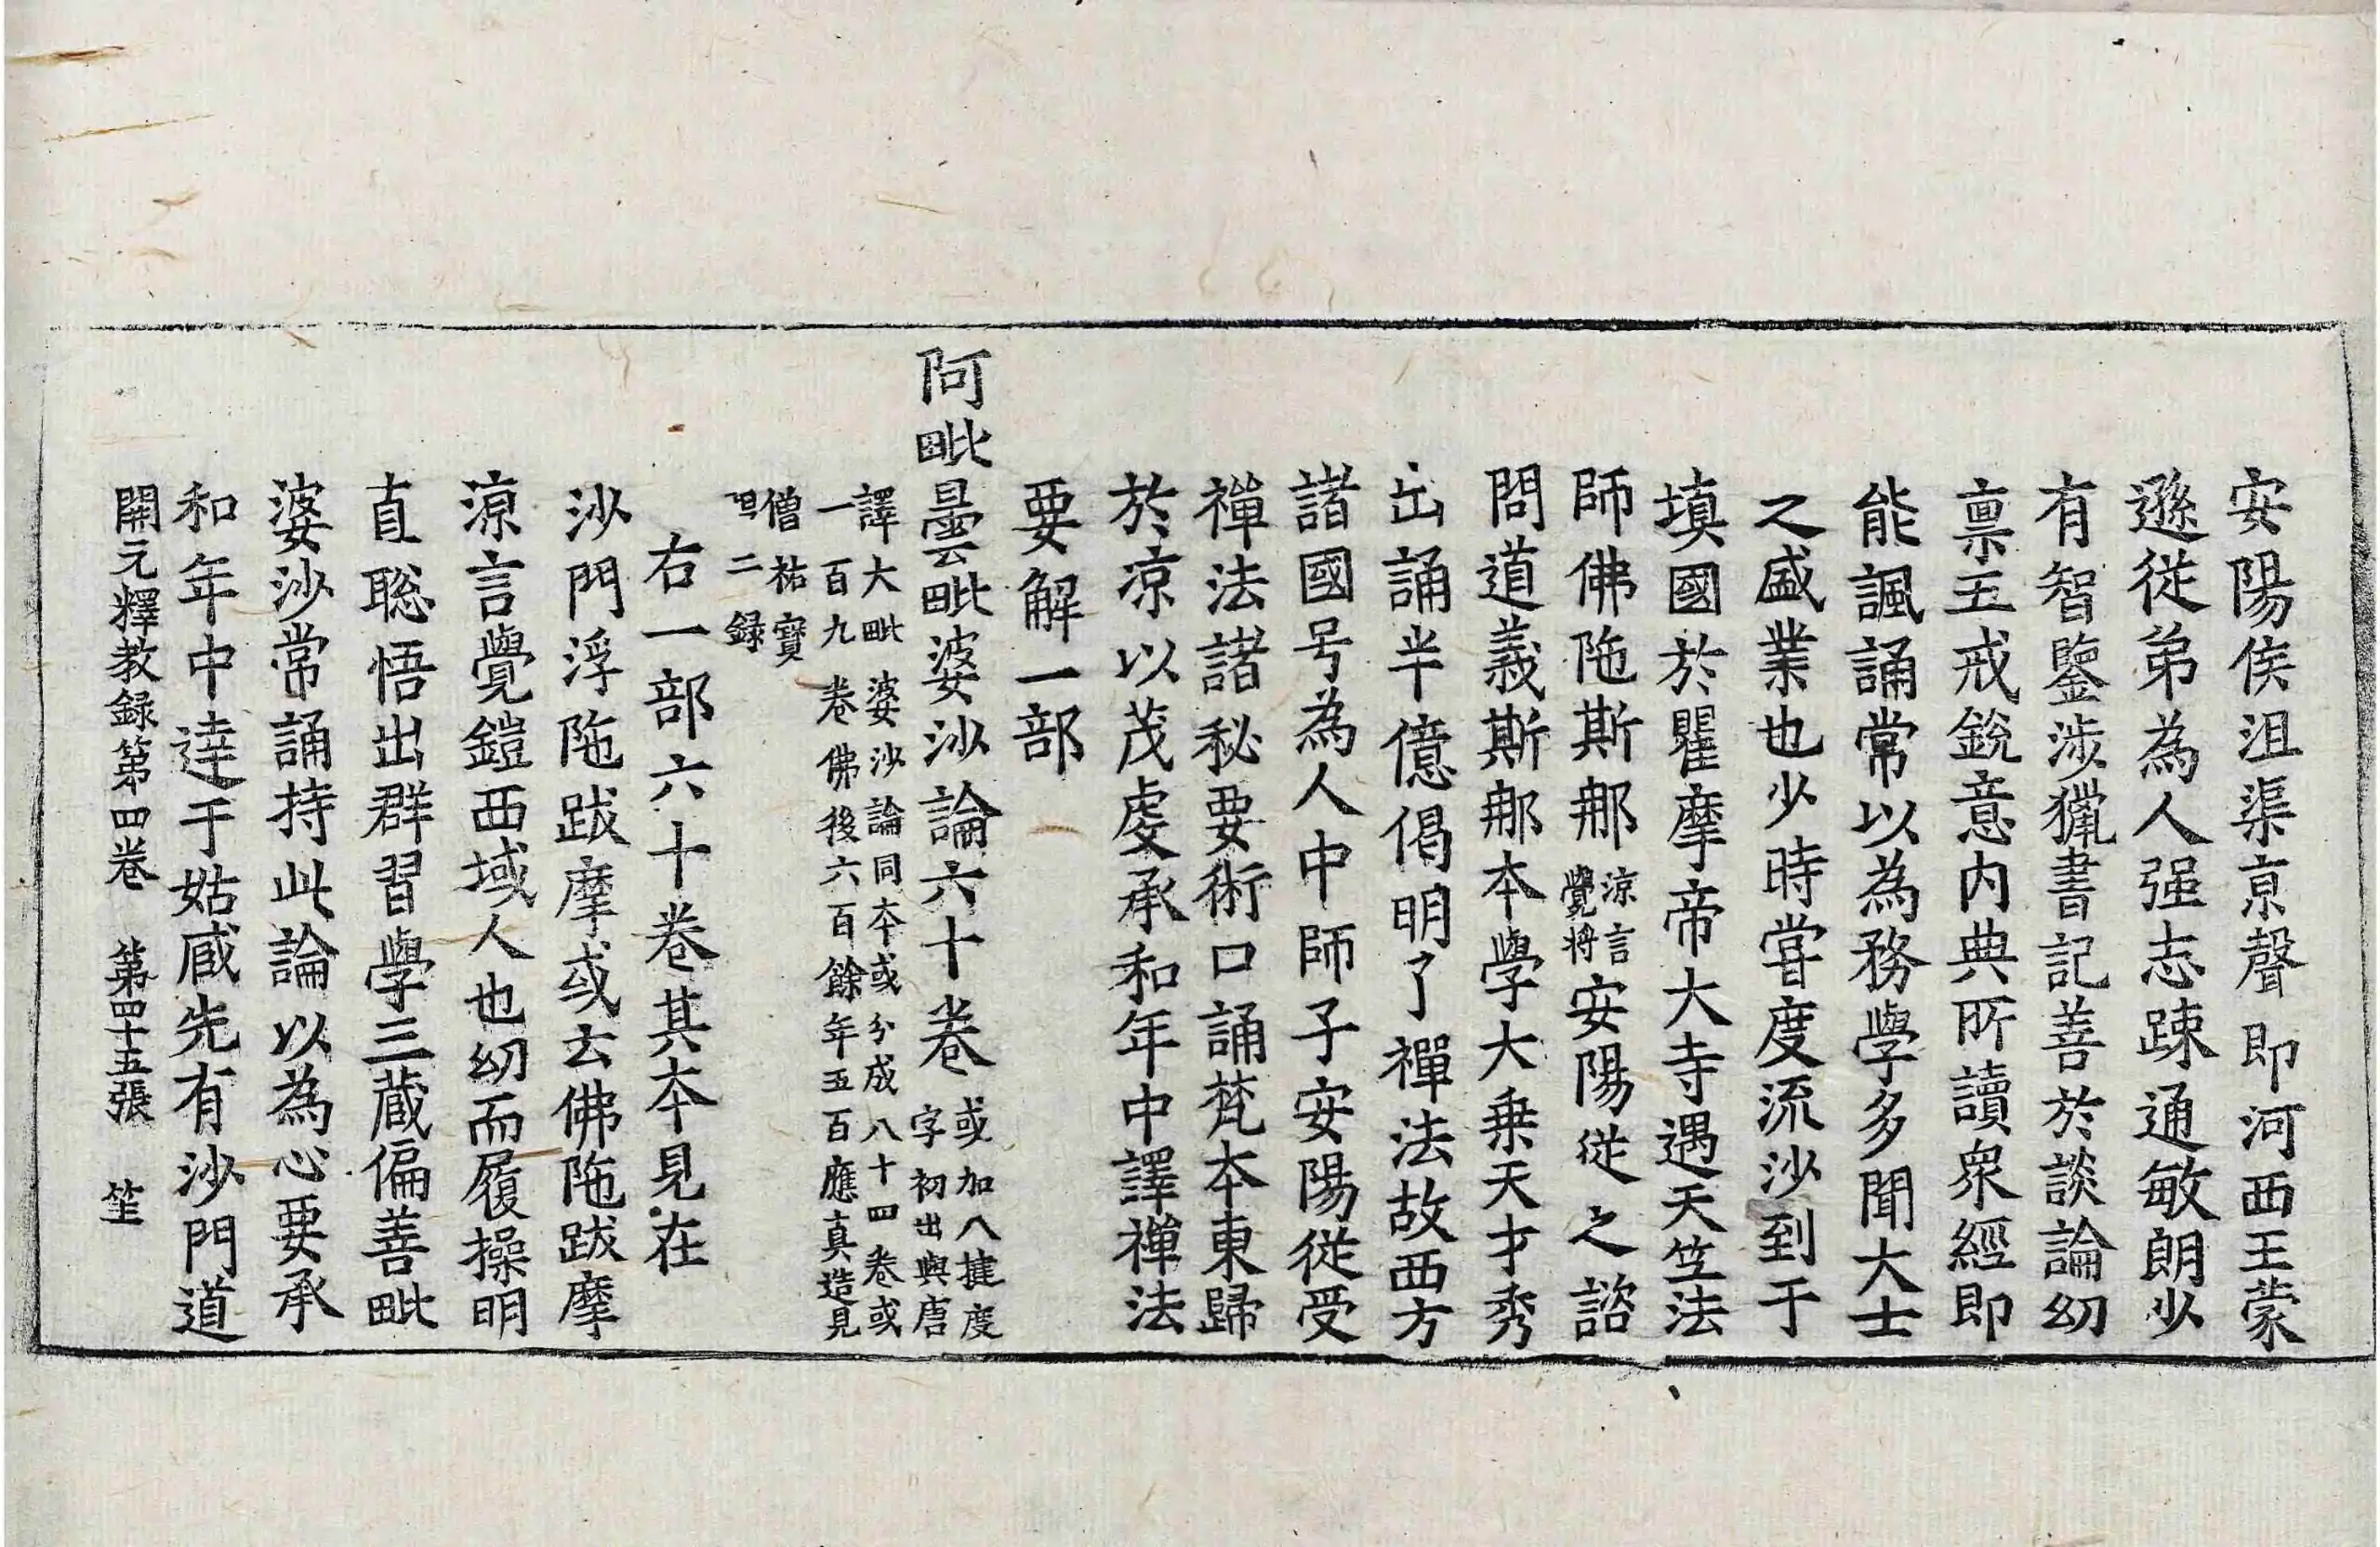 安陽侯沮渠京聲即河西王蒙
遜從弟為人强志踈通敏朗少
有智鑒涉獵書記善於談論幼
禀五戒銳意内典所讀衆經即
能諷誦常以為務學多聞大士
之盛業也少時嘗度流沙到于
填國於瞿摩帝大寺遇天竺法
師佛陁斯那涼言覺将安陽從之諮
問道義斯那本學大乗天才秀
出誦半億偈明了禪法故西方
諸國号為人中師子安陽從受
禪法諸秘要術口誦梵本東歸
於凉以茂虔承和年中譯禪法
要解一部
阿毗曇毗婆沙論六十卷或加八揵度
字初出與唐
譯大毗婆沙論同本或分成八十四卷或
一百九卷佛後六百餘年五百應真造見
僧祐寶
唱二録
右一部六十卷其本見在
沙門浮陁跋摩或云佛陁跋摩
涼言覺鎧西域人也幼而履操明
直聡悟出群習學三蔵偏善毗
婆沙常誦持此論以為心要承
和年中達于姑臧先有沙門道
開元釋教録第四卷　第四十五張　笙